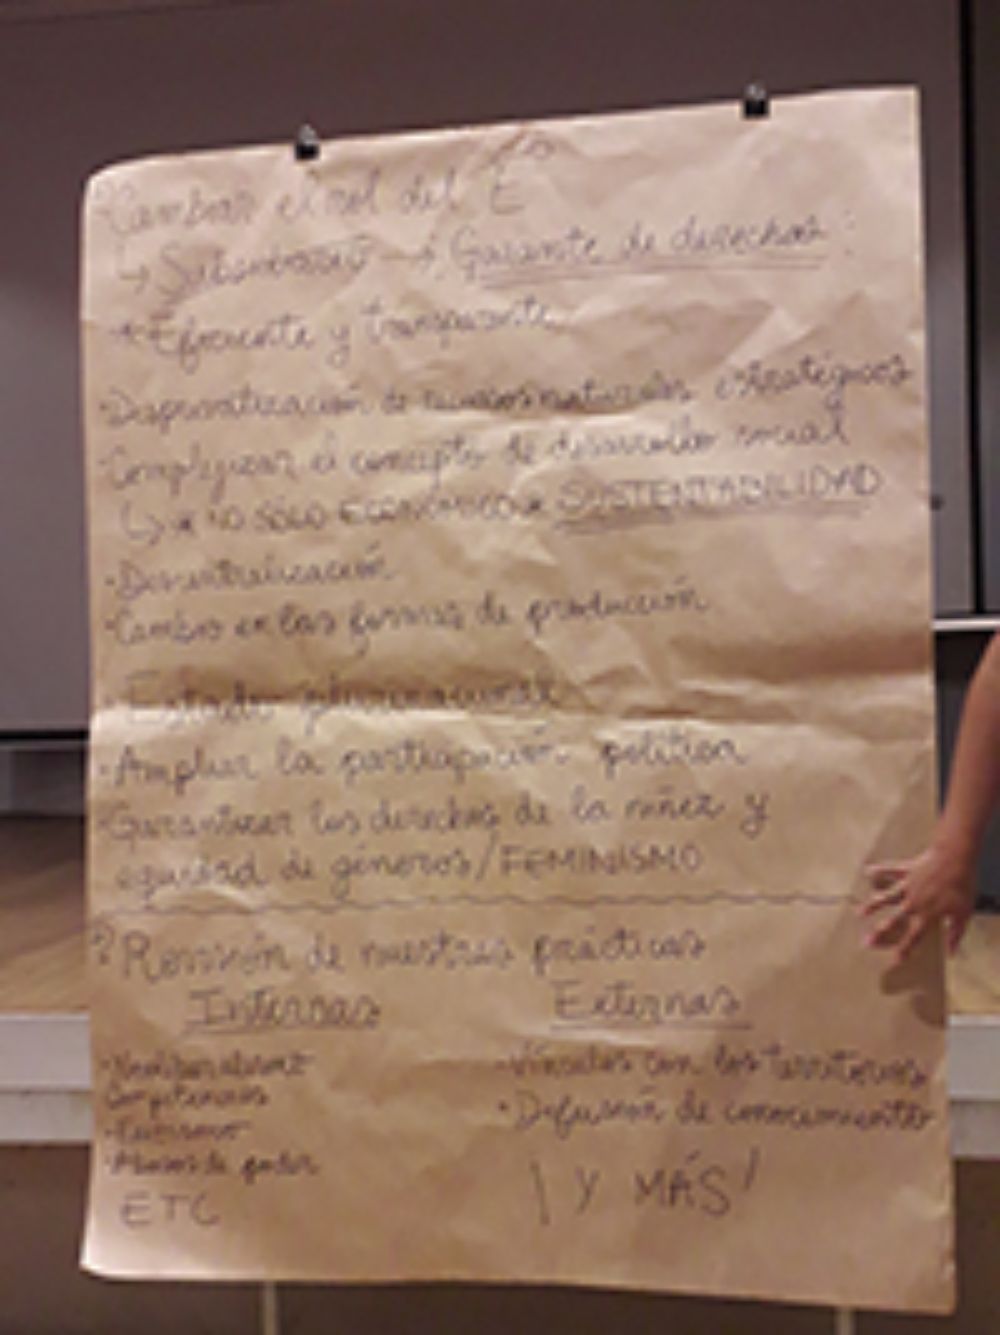 Cambiar el rol del E°
→ Subsidiario → Garante de derechos:
* Eficiente y transparente
· Desprivatización de recursos naturales estratégicos
· Complejizar el concepto de desarrollo social
↳ * NO SOLO ECONÓMICO * SUSTENTABILIDAD
· Descentralización
· Cambio en las formas de producción
· Estado plurinacional
· Ampliar la participación política
· Garantizar los derechos de la niñez y
equidad de géneros/FEMINISMO
? Revisión de nuestras prácticas
Internas Externas
· Vínculos con los territorios
Competencias
· Difusión de conocimiento
· Abusos de poder
ETC ¡Y MÁS!